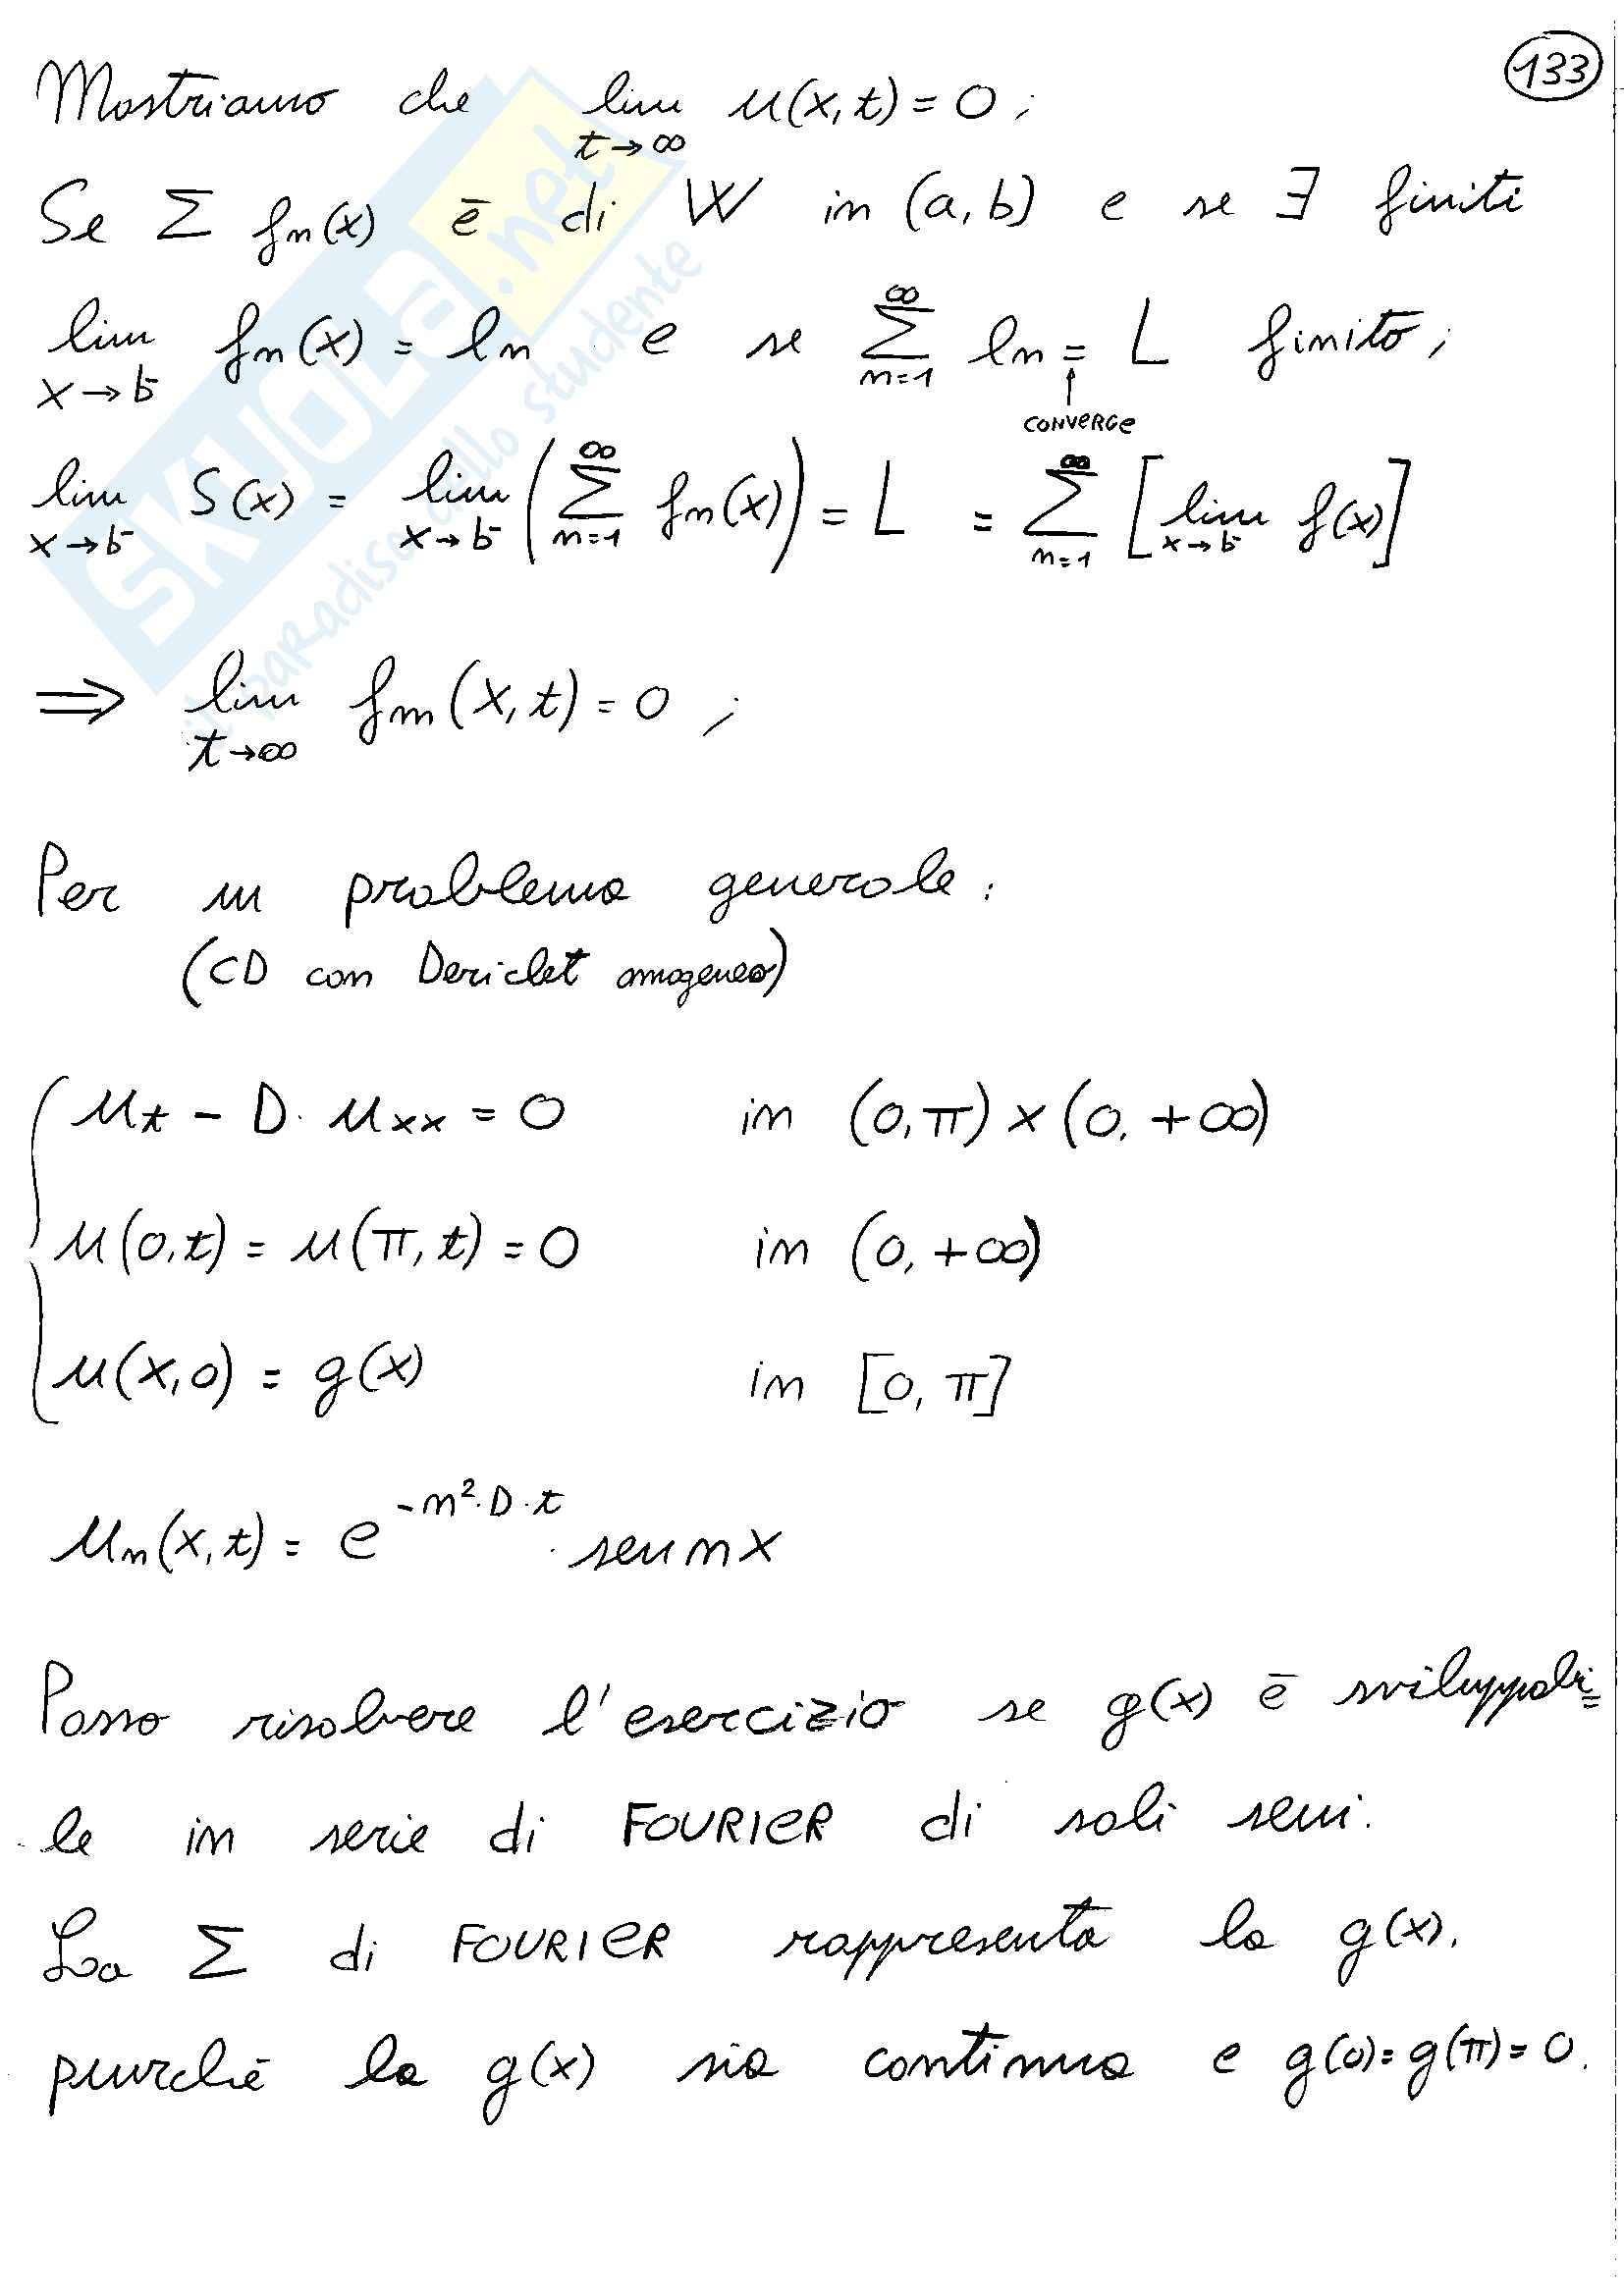 133
Mostriamo che lim u(x,t) = 0 ;
t→∞
Se Σ fn(x) ē di W in (a,b) e se ∃ finiti
lim fn(x) = ln e se Σ ln = L finito ;
x→b⁻ n=1 ∞ ↑
CONVERGE
lim S(x) = lim ( Σ fn(x) ) = L = Σ [ lim f(x) ]
x→b⁻ x→b⁻ n=1 ∞ n=1 ∞ x→b⁻
⇒ lim fm(x,t) = 0 ;
t→∞
Per un problema generale :
(CD con Dericlet omogeneo)
{ ut - D· uxx = 0 in (0,π) × (0, +∞)
u(0,t) = u(π,t) = 0 in (0, +∞)
u(x,0) = g(x) in [0,π]
un(x,t) = e^(-n²·D·t) · sen nx
Posso risolvere l'esercizio se g(x) ē sviluppabi=
le in serie di FOURIER di soli seni.
La Σ di FOURIER rappresenta la g(x).
purchē la g(x) sia continua e g(0)=g(π)=0.
SKUOLA.net
il paradiso dello studente